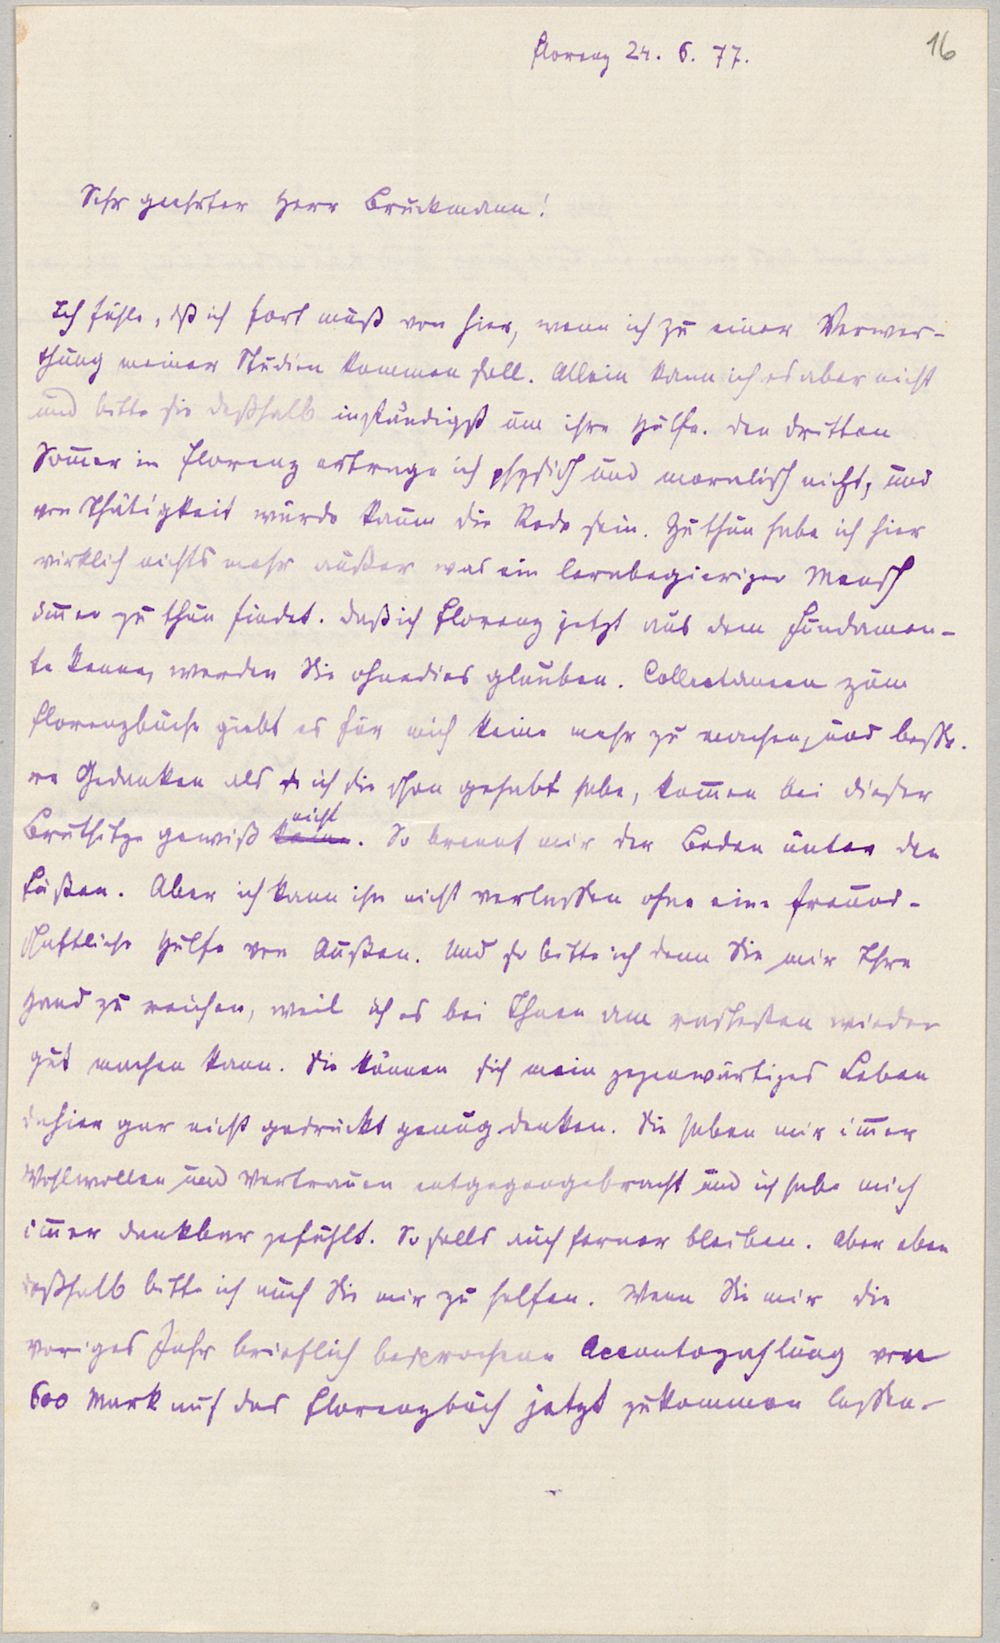 16
Florenz 24. 6. 77.
Sehr geehrter Herr Bruckmann!
Ich fühle, dß ich fort muß von hier, wenn ich zu einer Verwer-
thung meiner Studien kommen soll. Allein kann ich es aber nicht
und bitte sie deßhalb inständigst um ihre Hülfe. Den dritten
Somer in Florenz ertrage ich physisch und moralisch nicht, und
von Thätigkeit würde kaum die Rede sein. Zu thun habe ich hier
wirklich nichts mehr außer was ein lernbegieriger Mensch
imer zu thun findet. Daß ich Florenz jetzt aus dem Fundamen-
te kenne, werden Sie ohnedies glauben. Collectaneen zum
Florenzbuche giebt es für mich keine mehr zu machen, und besse-
re Gedanken als ich die schon gehabt habe, komen bei dieser
Bruthitze gewiß keine nicht. So brennt mir der Boden unter den
Füßen. Aber ich kann ihn nicht verlassen ohne eine freund-
schaftliche Hülfe von Außen. Und so bitte ich denn Sie mir Ihre
Hand zu reichen, weil ich es bei Ihnen am raschesten wieder
gut machen kann. Sie können sich mein gegenwärtiges Leben
dahier gar nicht gedrückt genug denken. Sie haben mir imer
Wohlwollen und Vertrauen entgegengebracht und ich habe mich
imer dankbar gefühlt. So solls auch ferner bleiben. Aber eben
deßhalb bitte ich auch Sie mir zu helfen. Wenn Sie mir die
voriges Jahr brieflich besprochene Accontozahlung von
600 Mark auf das Florenzbuch jetzt zukommen lassen